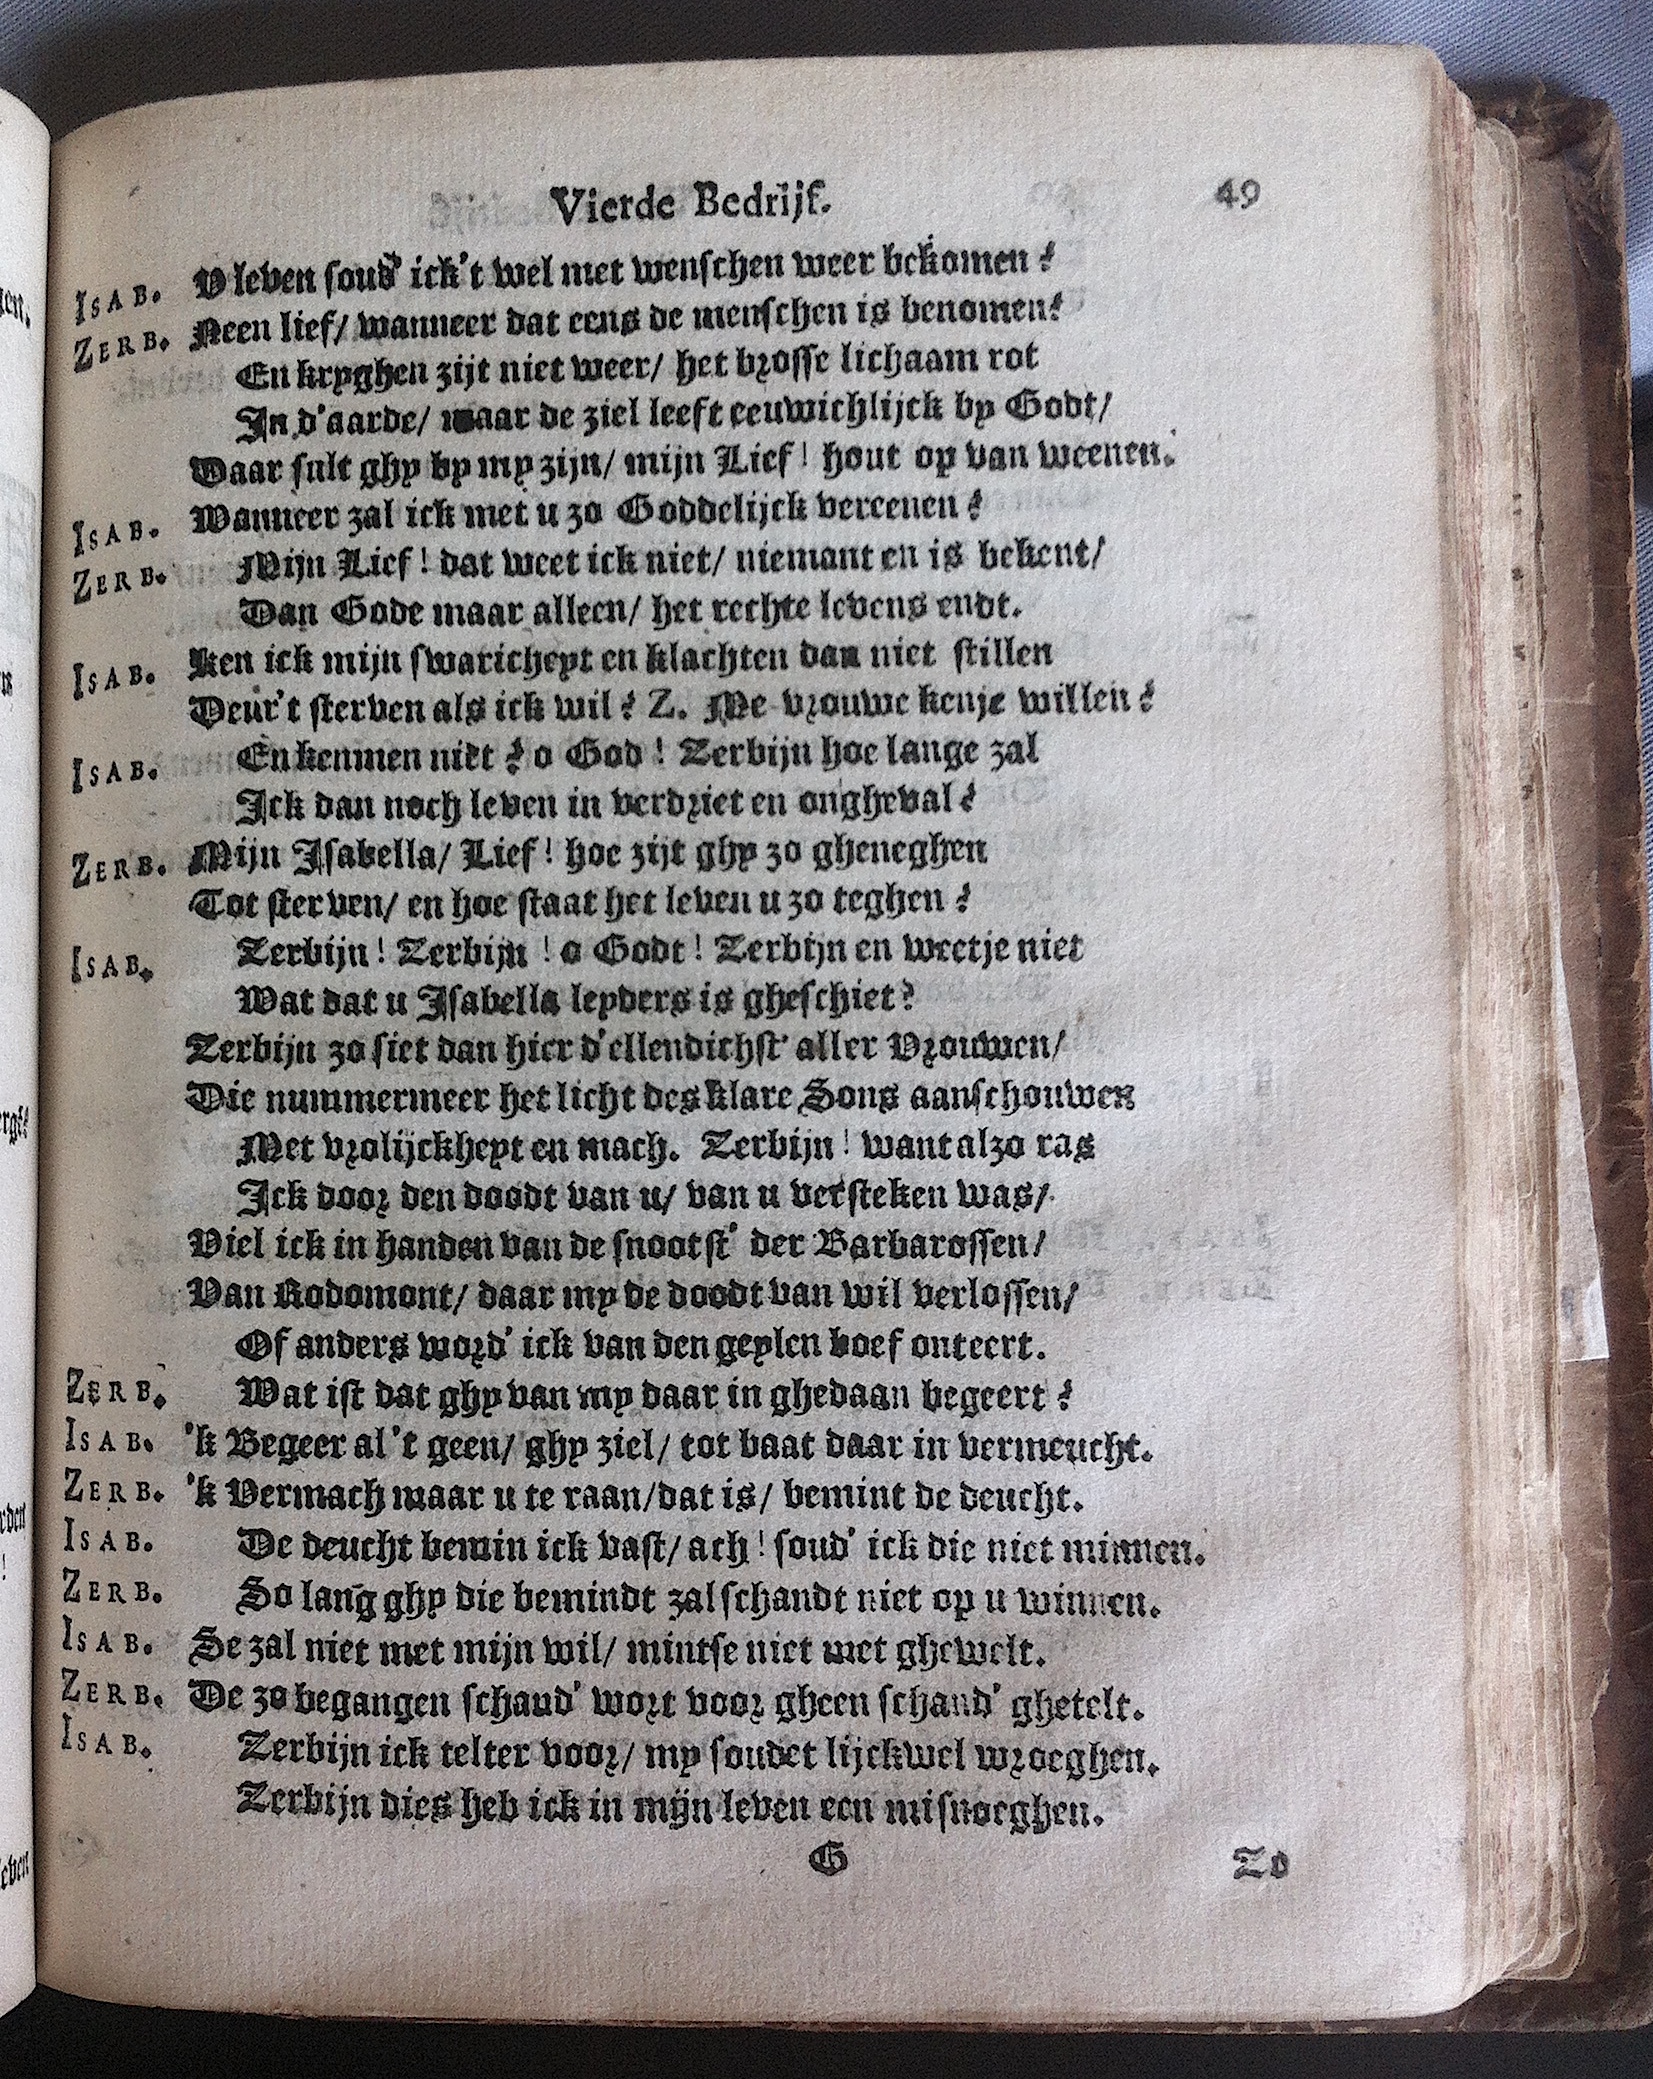 Vierde Bedrijf. 49
ISAB. V leven soud' ick't wel met menschen weer bekomen?
ZERB. Neen lief/ wanneer dat eens de menschen is benomen?
En kryghen zijt niet weer/ het brosse lichaam rot
In d'aarde/ maar de ziel leeft eeuwichlijck by Godt/
Daar sult ghy by my zijn/ mijn Lief! hout op van weenen.
ISAB. Wanneer zal ick met u zo Goddelijck vereenen?
ZERB. Mijn Lief! dat weet ick niet/ niemant en is bekent/
Dan Gode maar alleen/ het rechte levens endt.
ISAB. Ken ick mijn swaricheyt en klachten dan niet stillen
Deur't sterven als ick wil? Z. Me vrouwe kenje willen?
ISAB. En kenmen niet? o God! Zerbijn hoe lange zal
Ick dan noch leven in verdriet en ongheval?
ZERB. Mijn Isabella/ Lief! hoe zijt ghy zo gheneghen
Tot sterven/ en hoe staat het leven u zo teghen?
ISAB. Zerbijn! Zerbijn! o Godt! Zerbijn en weetje niet
Wat dat u Isabella leyders is gheschiet?
Zerbijn zo siet dan hier d'ellendichst' aller Vrouwen/
Die nummermeer het licht des klare Sons aanschouwen
Met vrolijckheyt en mach. Zerbijn! want alzo ras
Ick door den doodt van u/ van u versteken was/
Viel ick in handen van de snootst' der Barbarossen/
Van Rodomont/ daar my de doodt van wil verlossen/
Of anders word' ick van den geylen boef onteert.
ZERB. Wat ist dat ghy van my daar in ghedaan begeert?
ISAB. 'k Begeer al 't geen/ ghy ziel/ tot baat daar in vermeucht.
ZERB. 'k Vermach maar u te raan/dat is/ bemint de deucht.
ISAB. De deucht bemin ick vast/ ach! soud' ick die niet minnen.
ZERB. So lang ghy die bemindt zal schandt niet op u winnen.
ISAB. Se zal niet met mijn wil/ mintse niet met ghewelt.
ZERB. De zo begangen schand' wort voor gheen schand' ghetelt.
ISAB. Zerbijn ick telter voor/ my soudet lijckwel wroeghen.
Zerbijn dies heb ick in mijn leven een misnoeghen.
G Zo